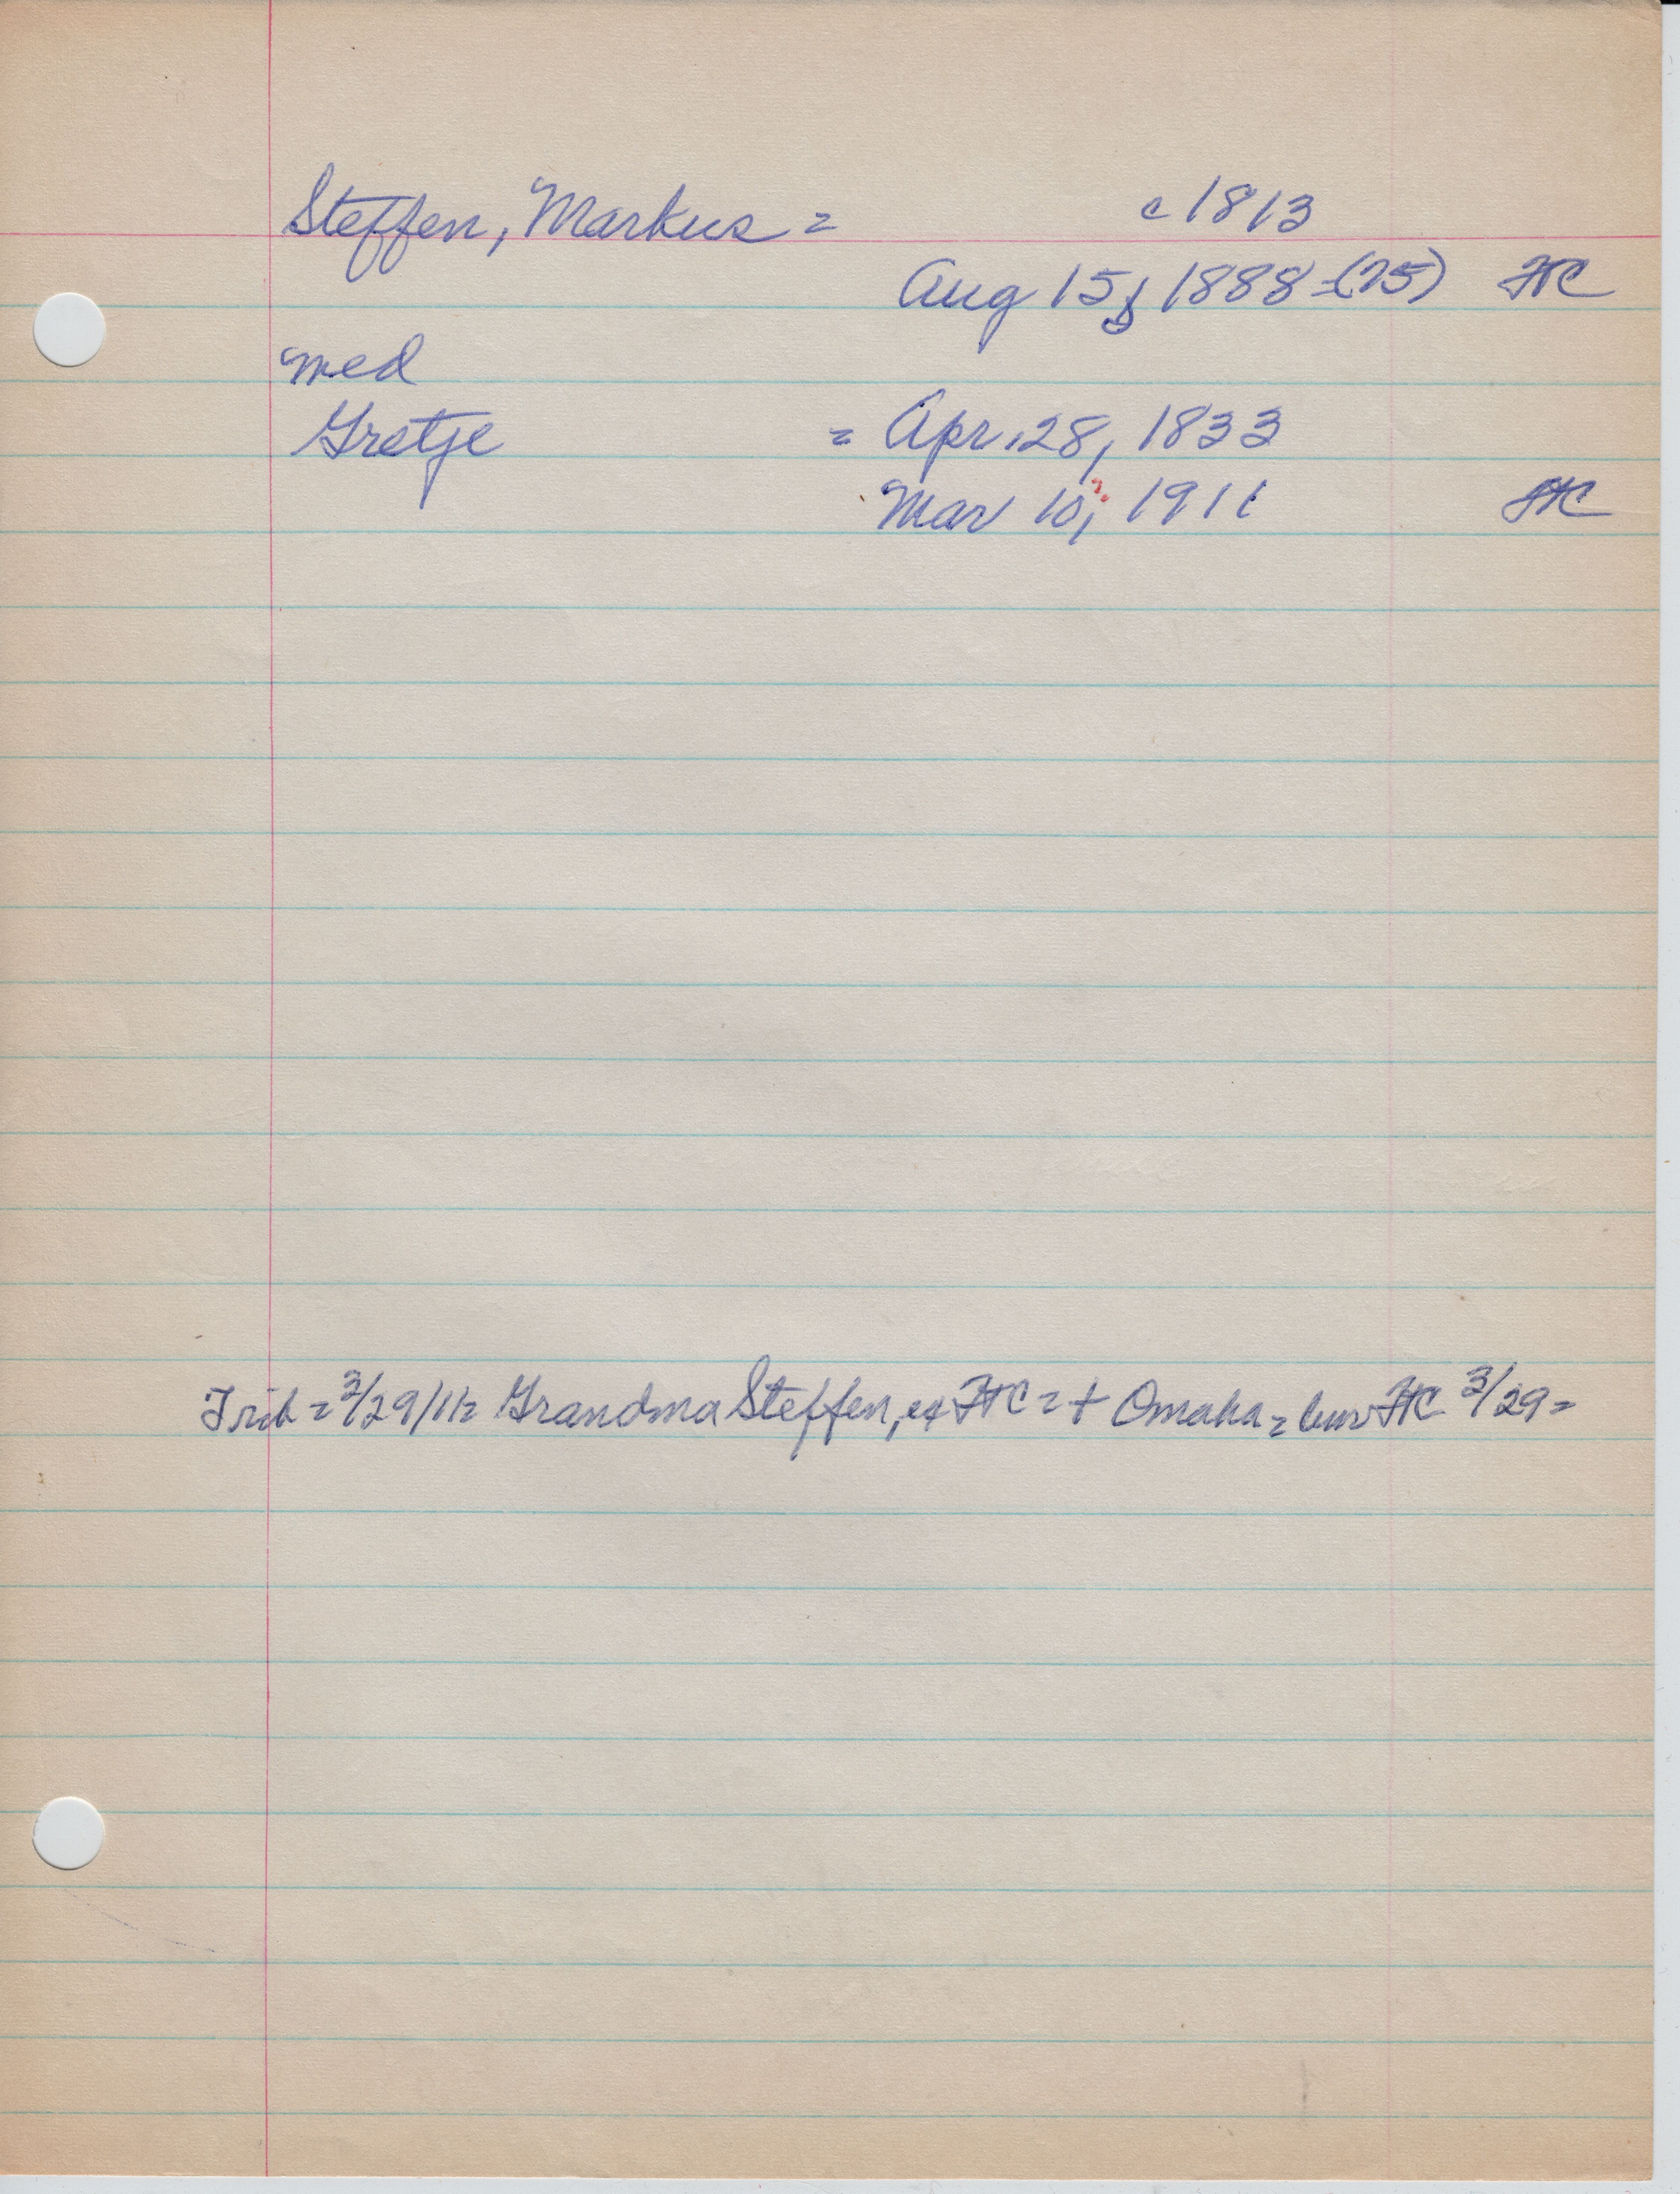 Steffen, Markus = c 1813
Aug 15, 1888 - (75) FTC
med
Gretje = Apr. 28, 1833
Mar 10, 1911 FTC
Trib = 3/29/11 = Grandma Steffen, ex FTC = + Omaha = bur FTC 3/29 =